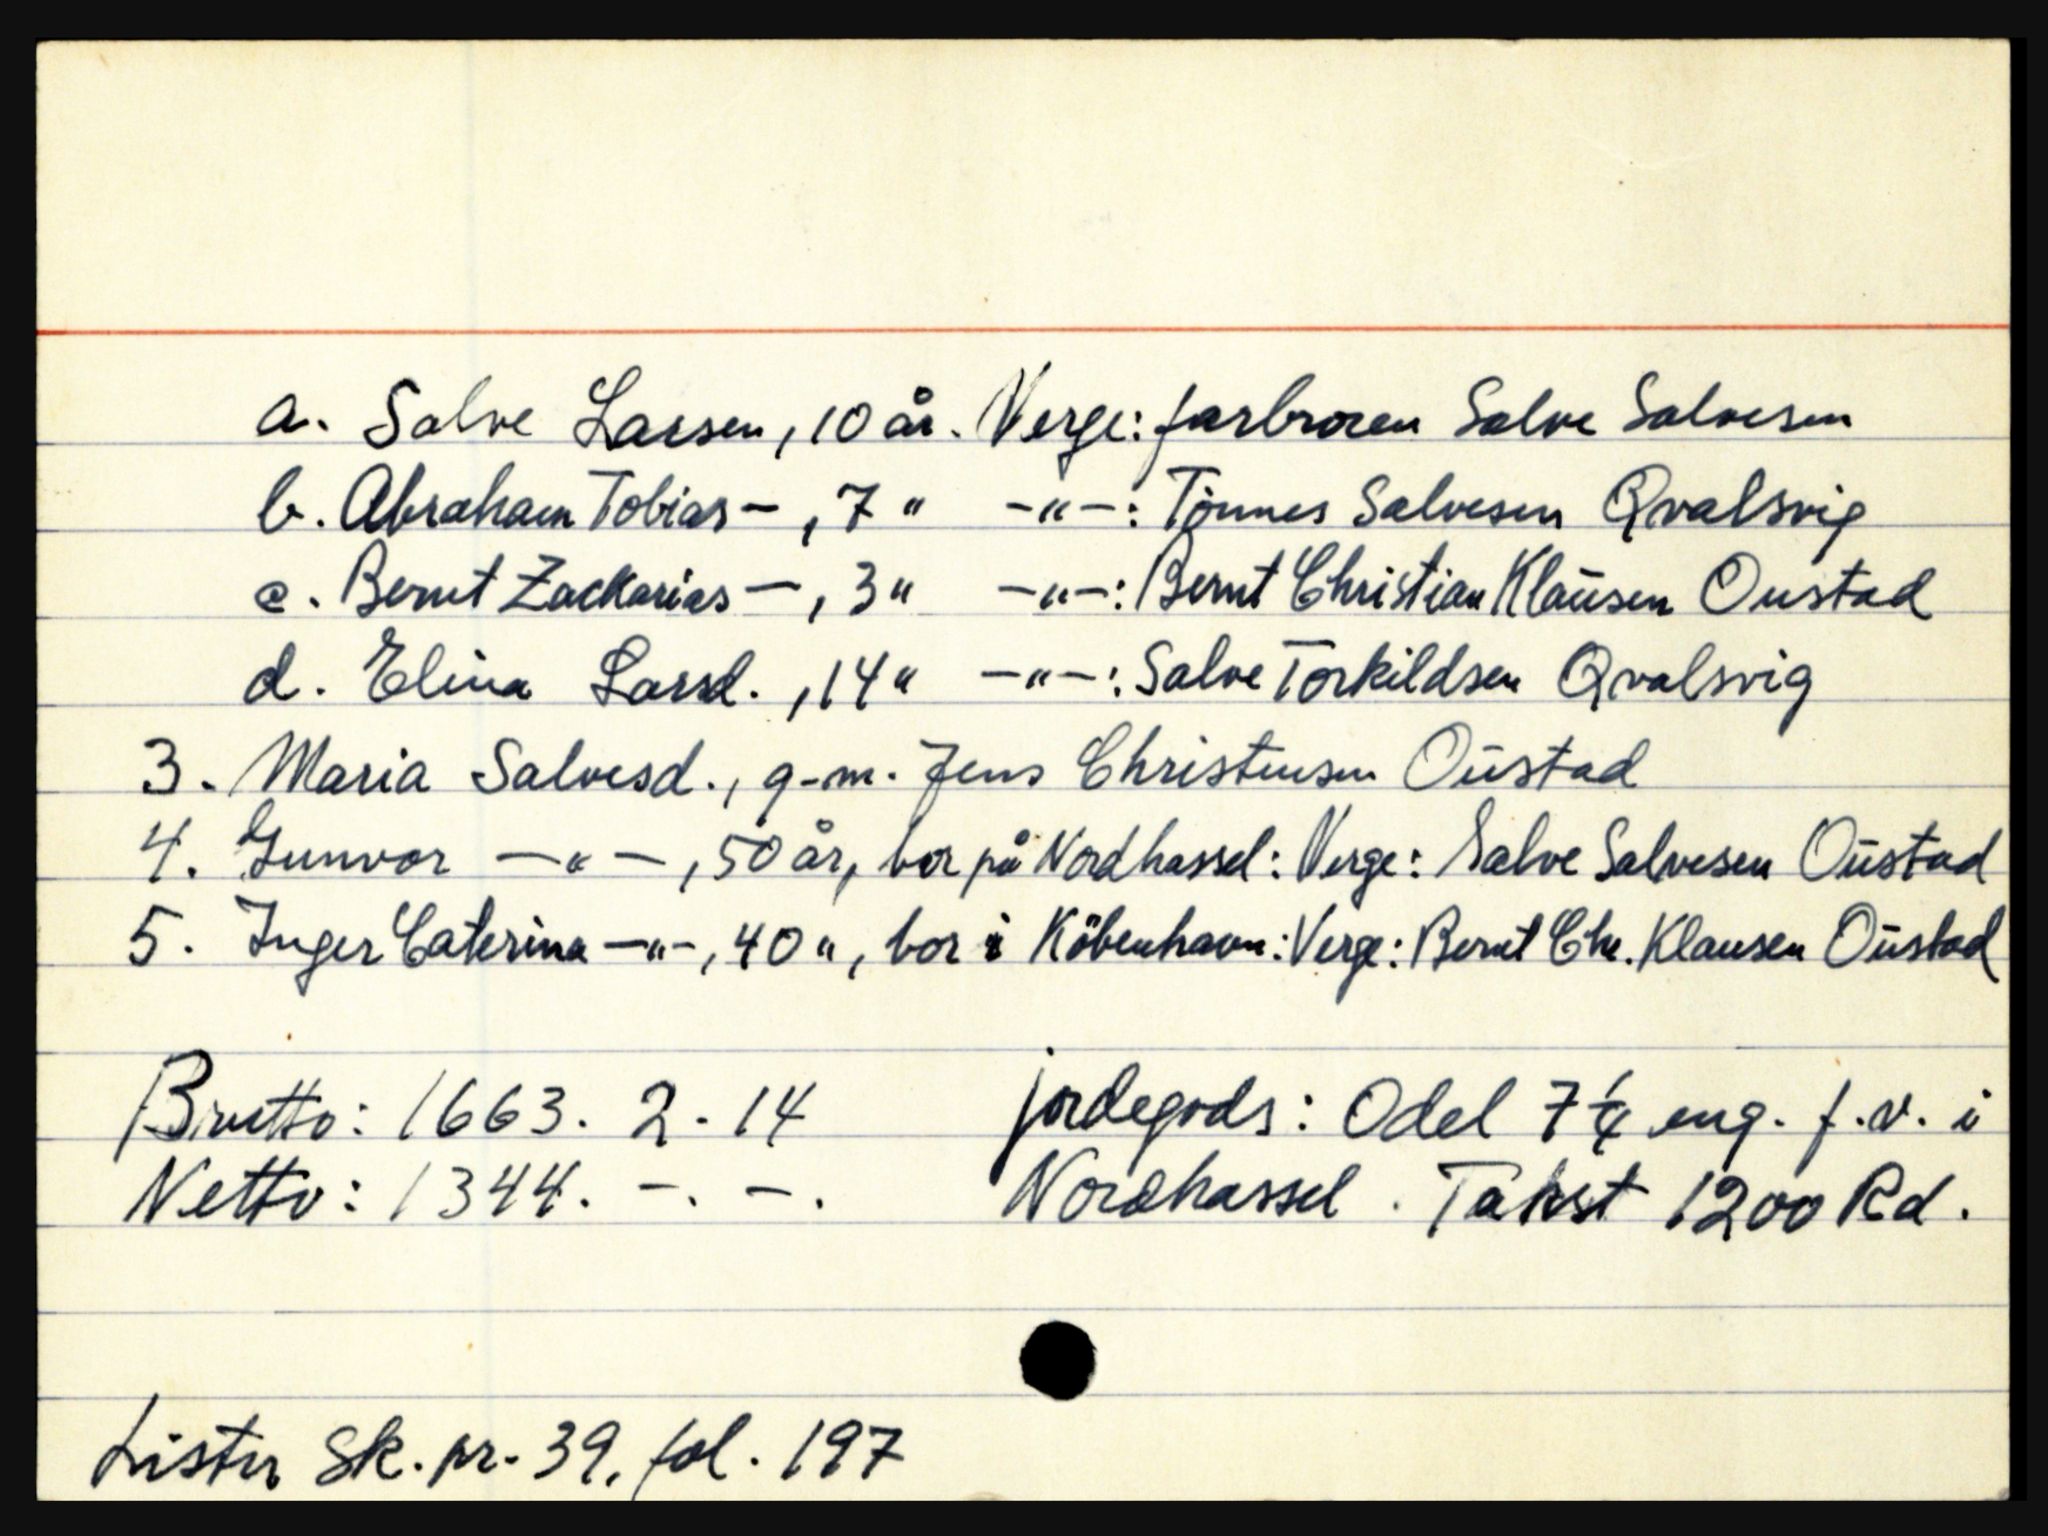 a. Salve Larsen, 10 år. Verge: farbroren Salve Salvesen
b. Abraham Tobias —, 7 " —"—: Tönnes Salvesen Qvalsvig
c. Bernt Zackarias —, 3 " —"—: Bernt Christian Klaüsen Oustad
d. Elina Larsd., 14 " —"—: Salve Torkildsen Qvalsvig
3. Maria Salvesd., g.m. Jens Christensen Oüstad
4. Gunvor —"—, 50 år, bor på Nordhassel: Verge: Salve Salvesen Oüstad
5. Inger Caterina —"—, 40 ", bor i Köbenhavn: Verge: Bernt Chr. Klausen Oüstad
Brutto: 1663. 2. 14 jordegods: Odel 7 1/4 eng. f.v. i
Netto: 1344. —. —. Nordhassel. Takst 1200 Rd.
Lister Sk. pr. 39, fol. 197